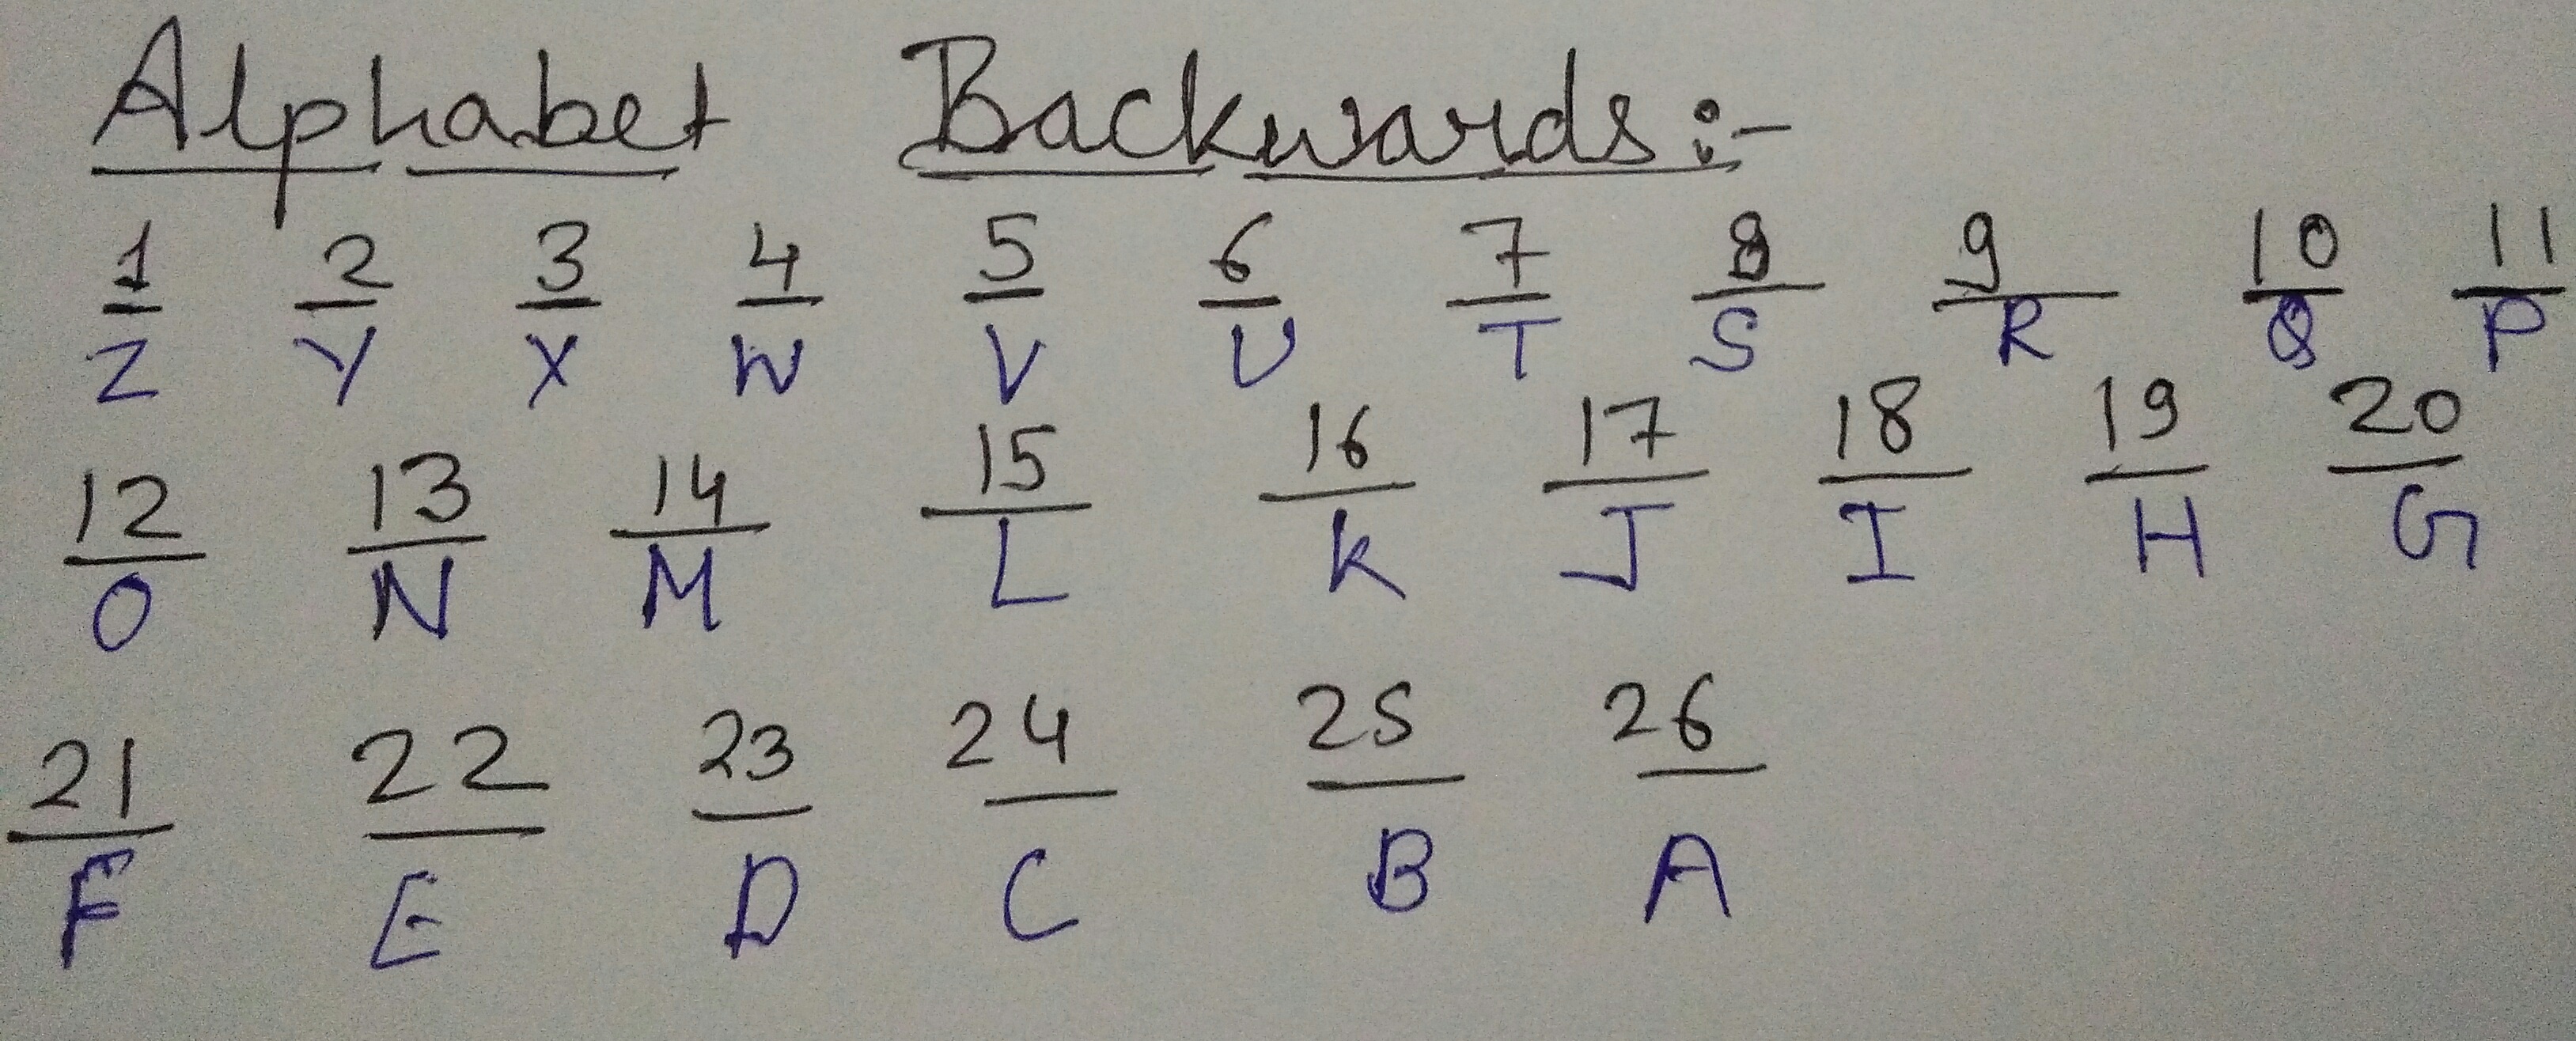 Alphabet Backwards:-
1 2 3 4 5 6 7 8 9 10 11
Z Y X W V U T S R Q P
12 13 14 15 16 17 18 19 20
O N M L K J I H G
21 22 23 24 25 26
F E D C B A